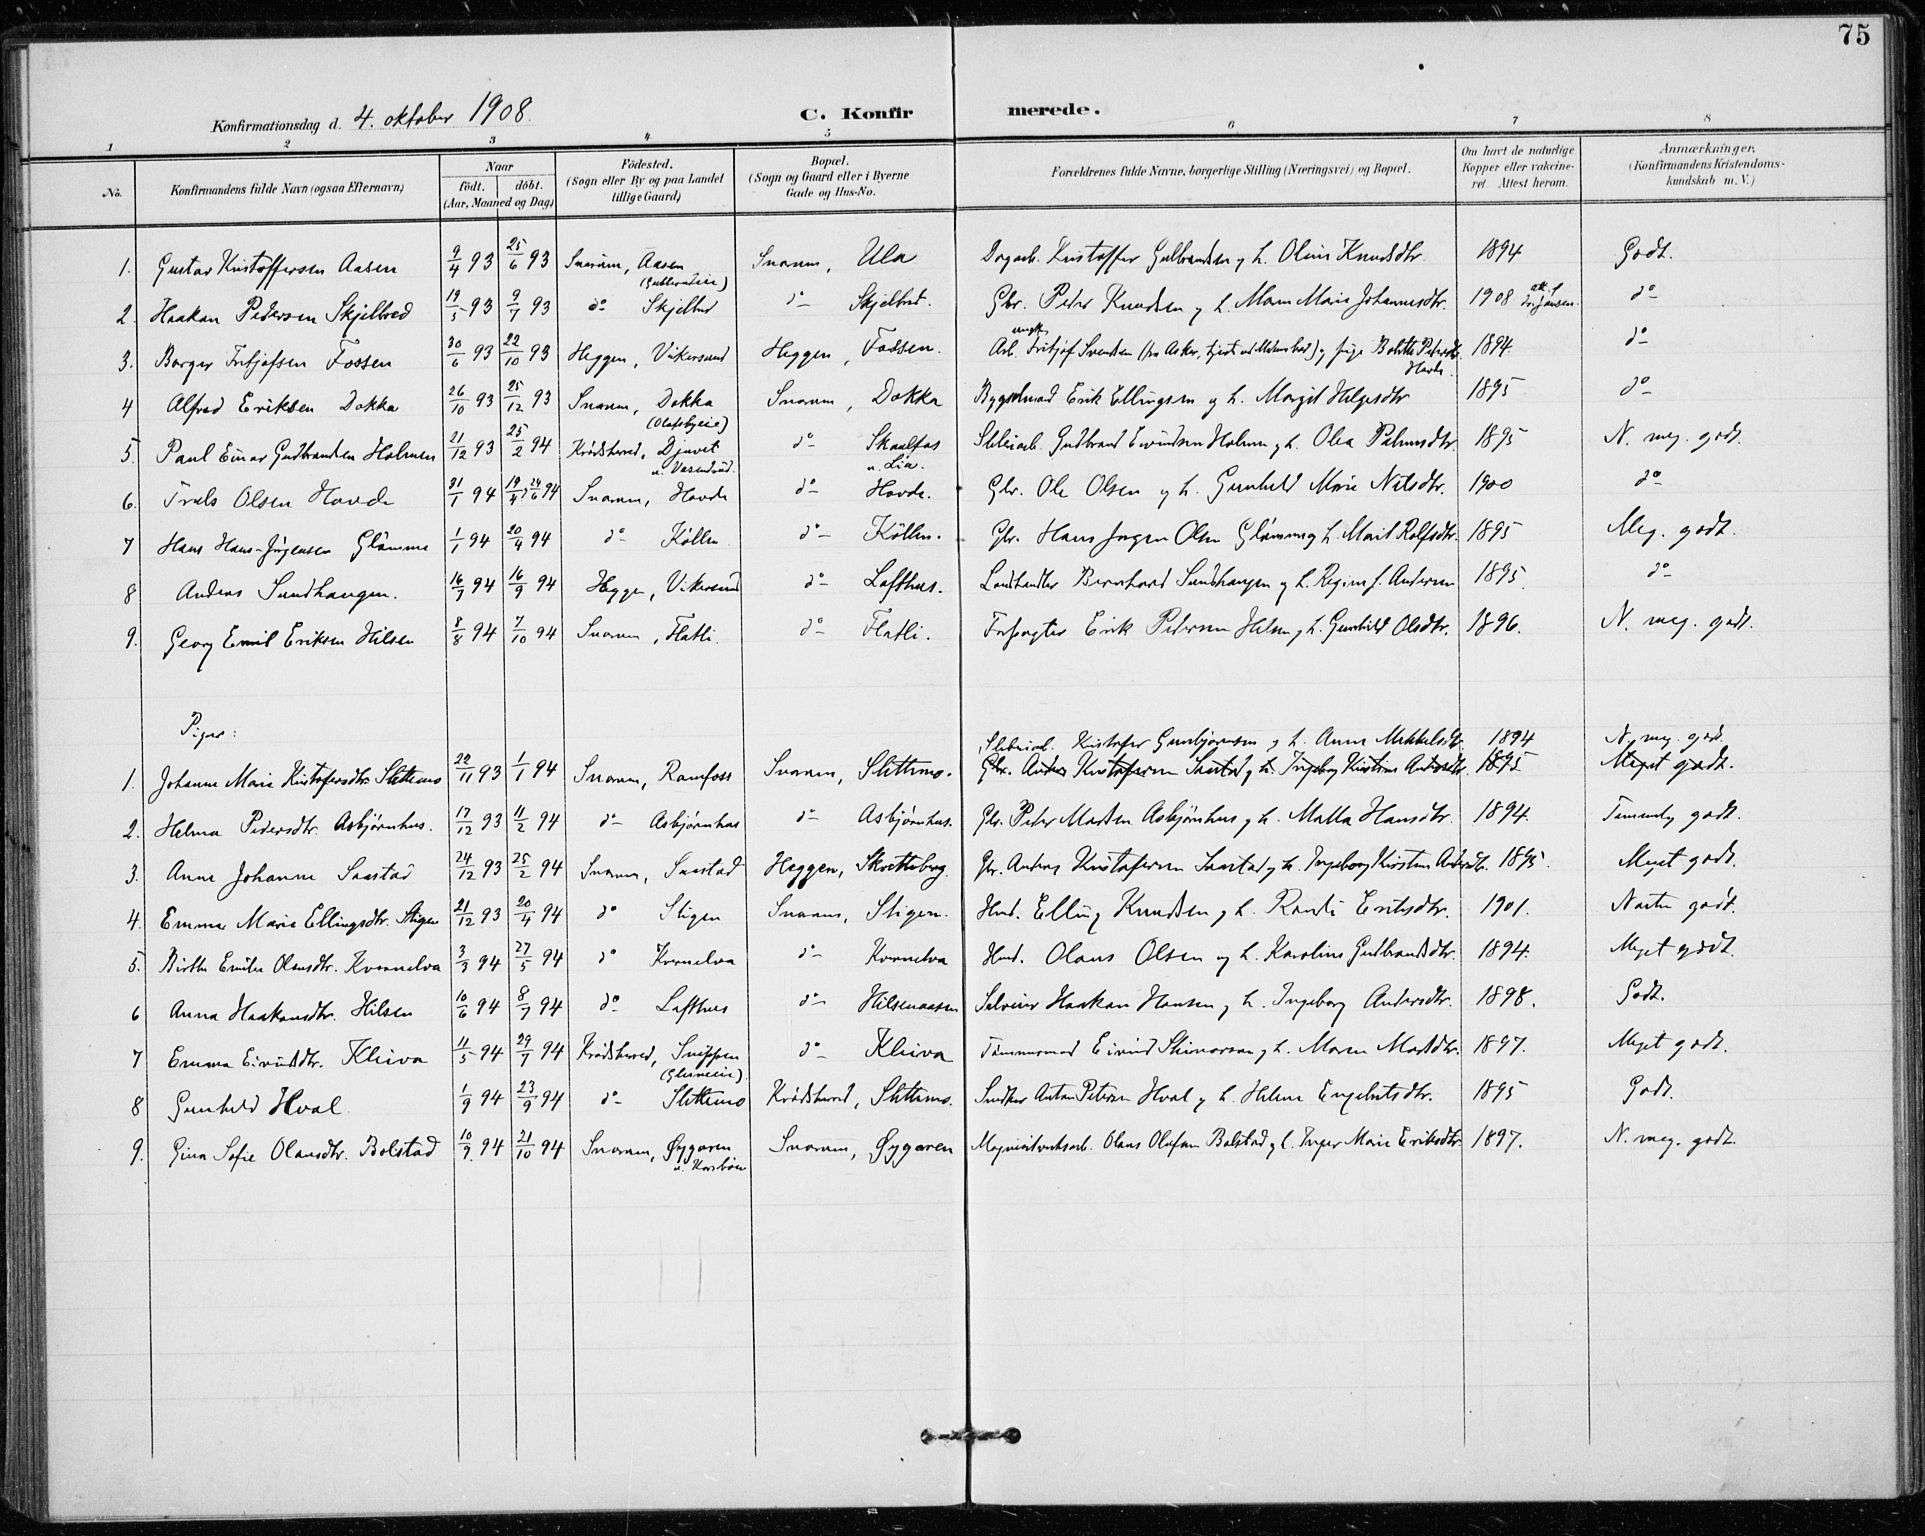 75
Konfirmationsdag d. 4. oktober 1908.
C. Konfirmerede.
1 2 3 4 5 6 7 8
No.
Konfirmandens fulde Navn (ogsaa Efternavn)
Naar
födt. döbt.
(Aar, Maaned og Dag)
Födested.
(Sogn eller By og paa Landet
tillige Gaard)
Bopæl.
(Sogn og Gaard eller i Byerne
Gade og Hus-No.
Forældrenes fulde Navne, borgerlige Stilling (Næringsvei) og Bopæl.
Om havt de naturlige
Kopper eller vakcine-
ret Attest herom.
Anmærkninger.
(Konfirmandens Kristendoms-
kundskab m. V.)
1. Gustav Kristoffersen Aasen 9/4 93 25/6 93 Snarum, Aasen Snarum, Ula Dagarb. Kristoffer Gulbrandsen og h. Oline Knudsdtr. 1894 Godt.
2. Haakan Pedersen Skjelbred 19/5 93 9/7 93 do Skjelbred do Skjelbred. Gbr. Peder Knudsen og h. Maren Marie Johannesdtr. 1908 att. f. Dr. Jansen. do
3. Borger Fritjofsen Fossen 30/6 93 22/10 93 Heggen, Vikersund Heggen, Fossen. ungk. Arb. Fritjof Svendsen (fra Asker, tjent ved Modum bad) og pige Bolette Pedersdtr. Hovde. 1894. do
4 Alfred Eriksen Dokka 26/10 93 25/12 93 Snarum, Dokka (Olafsbyeie) Snarum, Dokka Bygselmand Erik Ellingsen og h. Margit Helgesdtr 1895 do
5. Paul Einar Gudbrandsen Holmen 21/12 93 25/2 94 Krødsherred, Djuvet u. Vasendrud. do Skaalfos u. Lia. Sliberiarb. Gudbrand Eivindsen Holmen og h. Olea Palmesdtr. 1895 N. meg. godt.
6. Truls Olsen Hovde 31/1 94 19/4, 24/6 94 Snarum, Hovde do Hovde. Gbr. Ole Olsen og h. Gunhild Marie Nilsdtr. 1900 do
7 Hans Hans-Jørgensen Glömme 1/1 94 20/4 94 do Köllen do Köllen. Gbr. Hans Jørgen Olsen Glömme og h. Marit Rolfsdtr. 1895 Meg. godt.
8 Anders Sundhaugen. 16/7 94 16/9 94 Heggen, Vikersund do Lofthus. Landhandler Bernhard Sundhaugen og h. Regine f. Andersen 1895. do
9. Georg Emil Eriksen Hilsen 8/8 94 7/10 94 Snarum, Flatli. do Flatli. Forpagter Erik Pedersen Hilsen og h. Gunhild Olsdtr. 1896. N. meg. godt.
Piger:
Sliberiarb. Kristofer Gunbjørnsen og h. Anne Mikkelsdtr. 1894 N. meg. godt.
1. Johanne Marie Kristofersdtr. Slettemo 22/11 93 1/1 94 Snarum, Ramfoss Snarum, Slettemo. Gbr. Anders Kristofersen Saastad og h. Ingeborg Kirstine Andersdtr. 1895 Meget godt.
2. Helma Pedersdtr. Asbjørnhus. 17/12 93 11/2 94 do Asbjørnhus do Asbjørnhus. Gbr. Peder Madsen Asbjørnhus og h. Malla Hansdtr. 1894. Temmelig godt.
3. Anne Johanne Saastad 24/12 93 25/2 94 Snarum, Saastad Heggen, Skretteberg. Gbr. Anders Kristofersen Saastad og h. Ingeborg Kirstine Andersdtr. 1895. Meget godt.
4. Emma Marie Ellingsdtr. Stigen 21/12 93 20/4 94 do Stigen Snarum, Stigen. Hmd. Elling Knudsen og h. Randi Eriksdtr. 1901. Nesten godt.
5. Birthe Emilie Olausdtr. Kvernelva 3/3 94 27/5 94 do Kvernelva do Kvernelva Hmd. Olaus Olsen og h. Karoline Gudbrandsdtr. 1894. Meget godt.
6 Anna Haakansdtr. Hilsen 10/6 94 8/7 94 do Lofthus do Hilsenaasen Selveier Haakan Hansen og h. Ingeborg Andersdtr. 1898. Godt.
7 Emma Eivindsdtr. Kleiva 11/5 94 29/7 94 Krødsherred, Snippen (Glesneeie) do Kleiva Tømmermand Eivind Steinarsen og h. Maren Madsdtr. 1897. Meget godt.
8 Gunhild Hval 1/9 94 23/9 94 do Slettemo Krødsherred, Slettemo. Snedker Anton Petersen Hval og h. Helene Engebretsdtr. 1895 Godt.
9. Gina Sofie Olausdtr. Bolstad 10/9 94 21/10 94 Snarum, Øygaren Snarum, Øygaren Olaus Olafsen Bolstad og h. Inger Marie Eriksdtr. 1897. N. meg. godt.